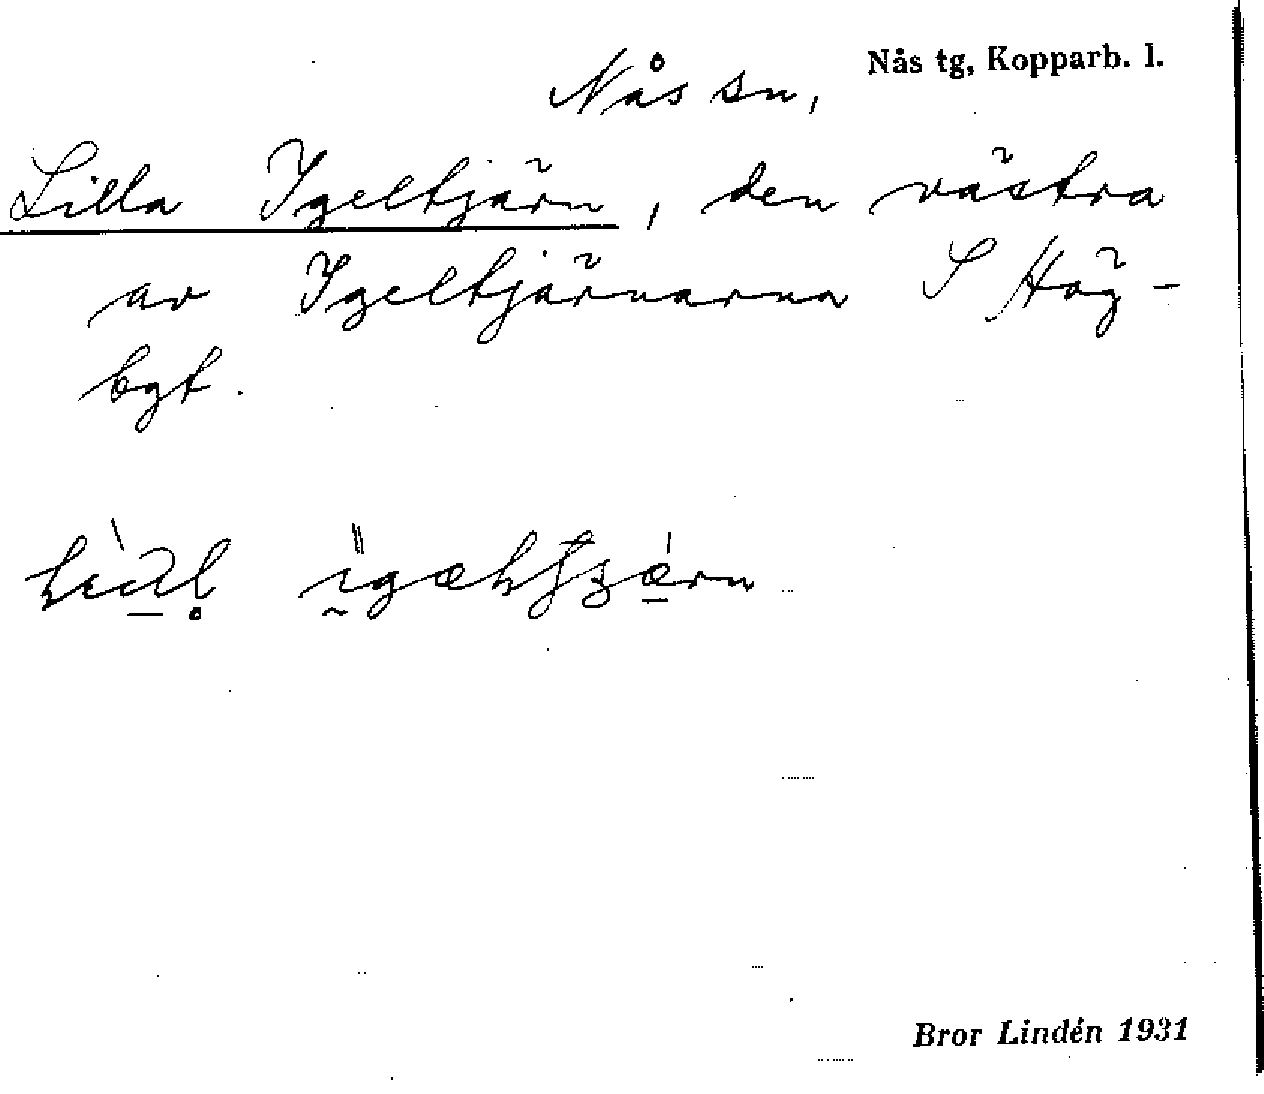 Nås tg, Kopparb. l.
Nås sn,
Lilla Igeltjärn, den västra
av Igeltjärnarna S Hög-
bgt.
Bror Lindén 1931